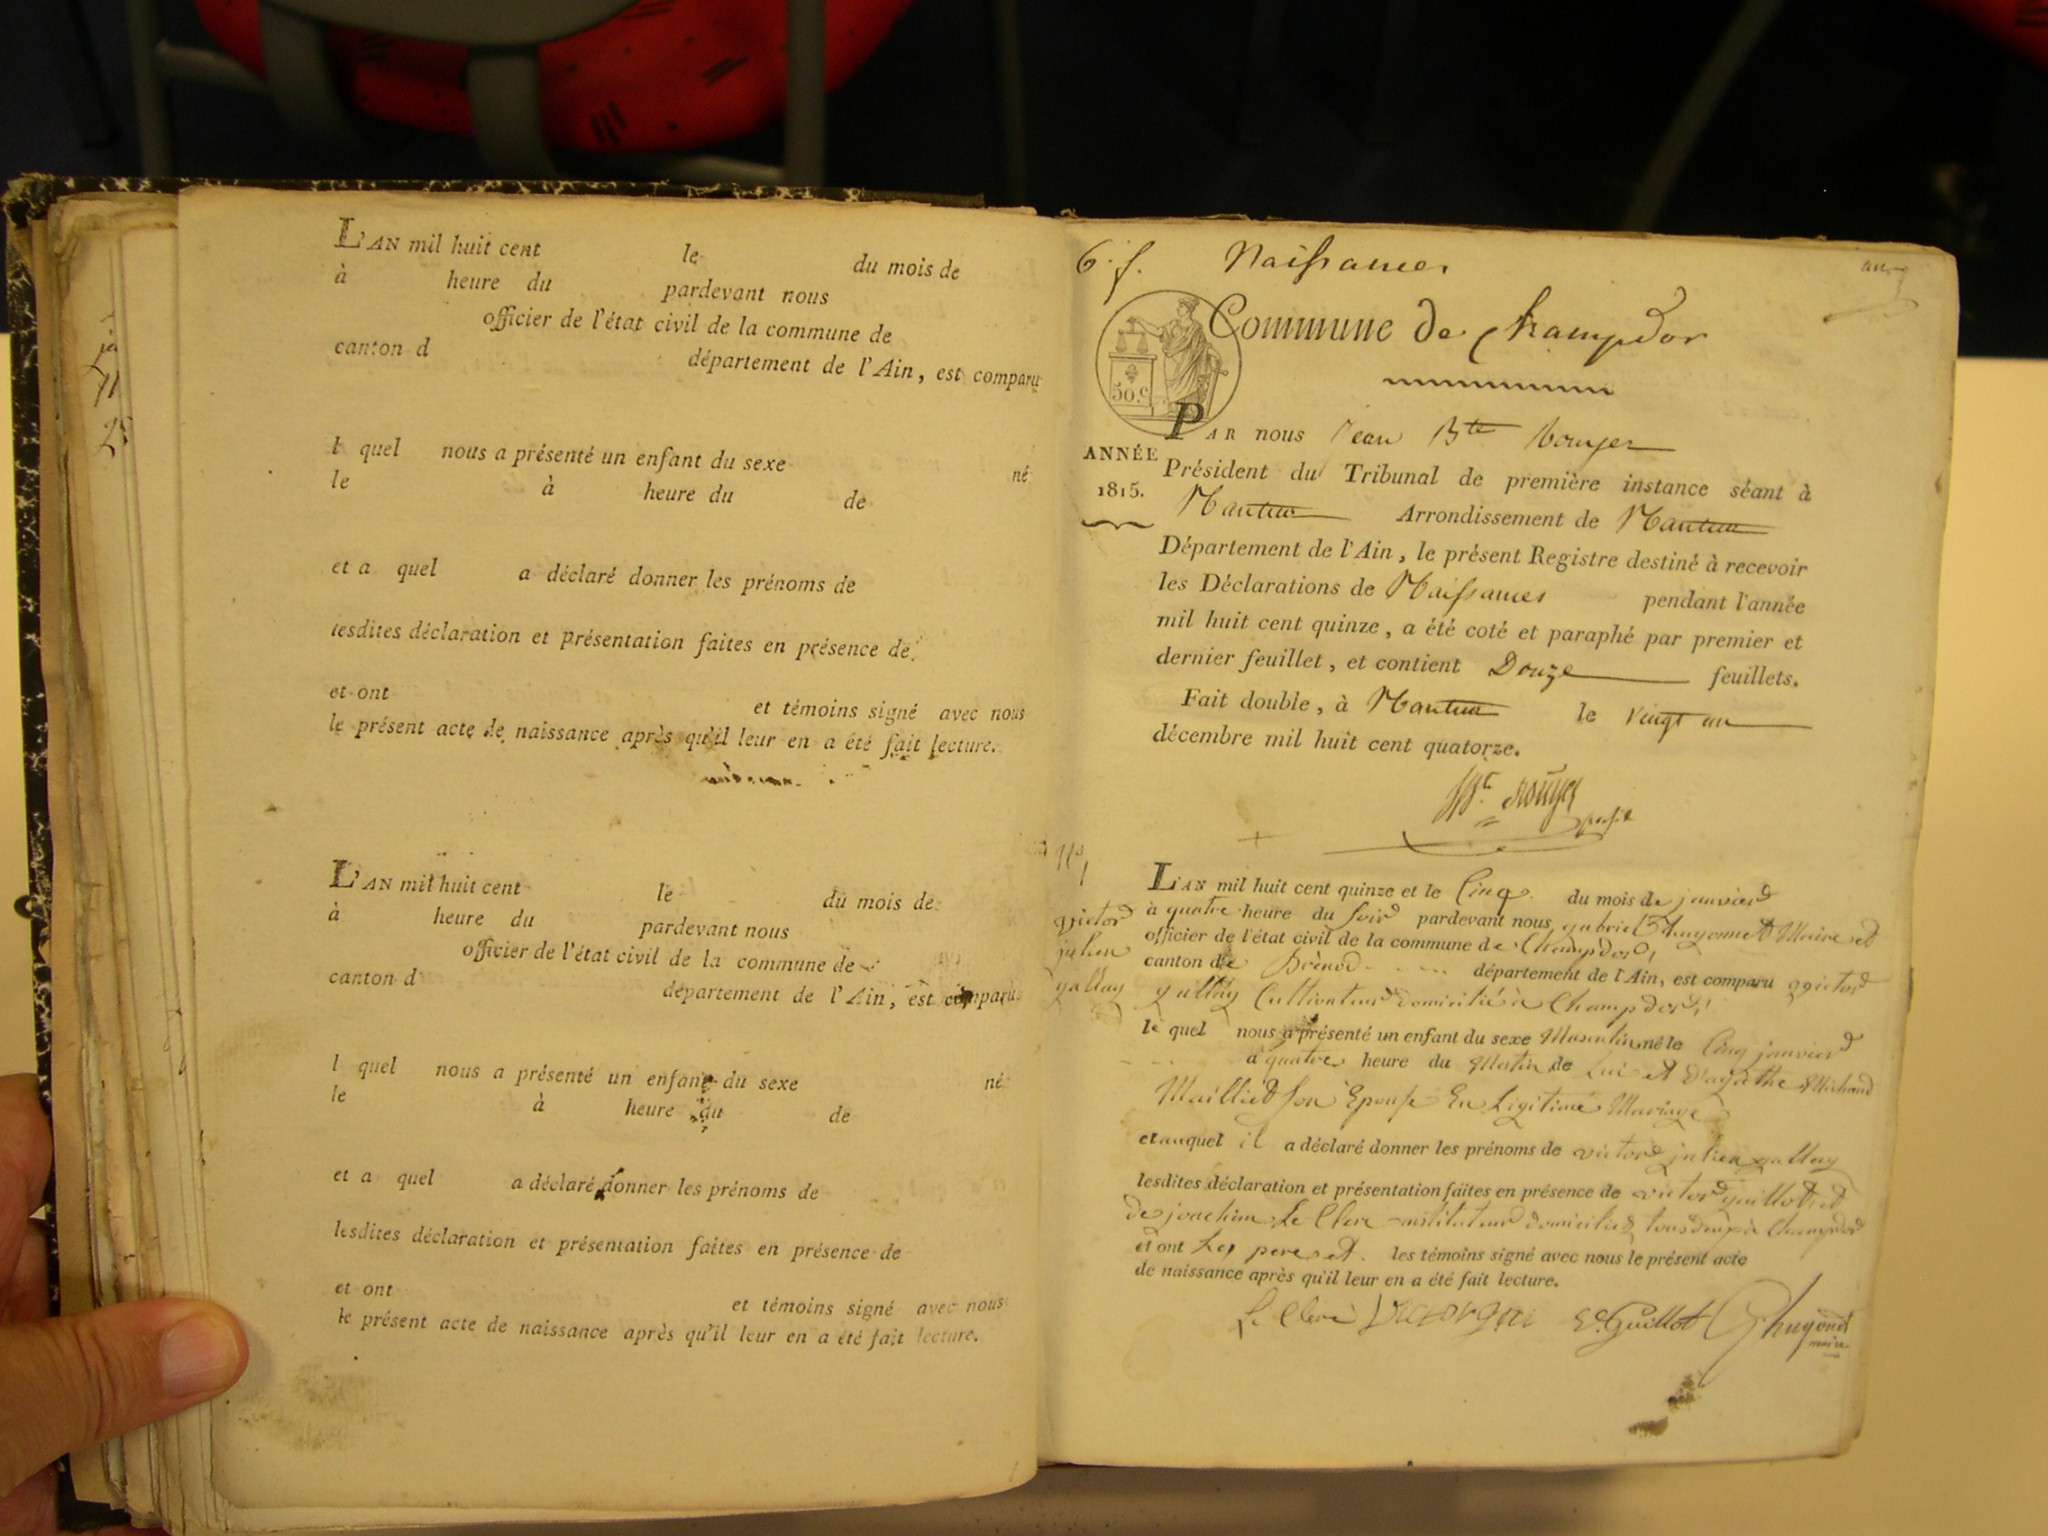 L'AN mil huit cent le du mois de
à heure du pardevant nous
officier de l'état civil de la commune de
canton d département de l'Ain, est comparu
l quel nous a présenté un enfant du sexe né
le à heure du de
et a quel a déclaré donner les prénoms de
lesdites déclaration et présentation faites en présence de
et ont et témoins signé avec nous
le présent acte de naissance après qu'il leur en a été fait lecture.
L'AN mil huit cent le du mois de
à heure du pardevant nous
officier de l'état civil de la commune de
canton d département de l'Ain, est comparu
l quel nous a présenté un enfant du sexe né
le à heure du de
et a quel a déclaré donner les prénoms de
lesdites déclaration et présentation faites en présence de
et ont et témoins signé avec nous
le présent acte de naissance après qu'il leur en a été fait lecture.
6. f. Naissances
Commune de Champdor
50.c
ANNÉE
1815.
PAR nous Jean Bte Rouyer
Président du Tribunal de première instance séant à
Nantua Arrondissement de Nantua
Département de l'Ain, le présent Registre destiné à recevoir
les Déclarations de Naissances pendant l'année
mil huit cent quinze, a été coté et paraphé par premier et
dernier feuillet, et contient Douze feuillets.
Fait double, à Nantua le vingt un
décembre mil huit cent quatorze.
Rouyer
No
1
victor
julien
gallay
L'AN mil huit cent quinze et le Cinq du mois de janvier
à quatre heure du soir pardevant nous gabriel thugonnet Maire et
officier de l'état civil de la commune de Champdor,
canton de Brénod département de l'Ain, est comparu victor
gallay Cultivateur domicilié à Champdor,
le quel nous a présenté un enfant du sexe Masculin né le Cinq janvier
à quatre heure du Matin de Lui et d'agathe Michaud
Mailliet son Epouse En Légitime Mariage
et auquel il a déclaré donner les prénoms de victor julien gallay
lesdites déclaration et présentation faites en présence de victor guillot et
de joachim Le Clerc instituteur domiciliés tous deux à Champdor
et ont Le pere et les témoins signé avec nous le présent acte
de naissance après qu'il leur en a été fait lecture.
Le Clerc Guillot thugonet
maire